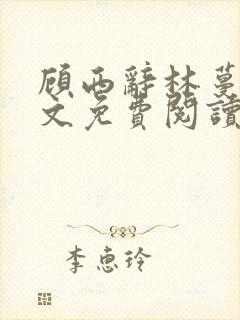 顾西辞林蔓
文免费阅读
李惠玲